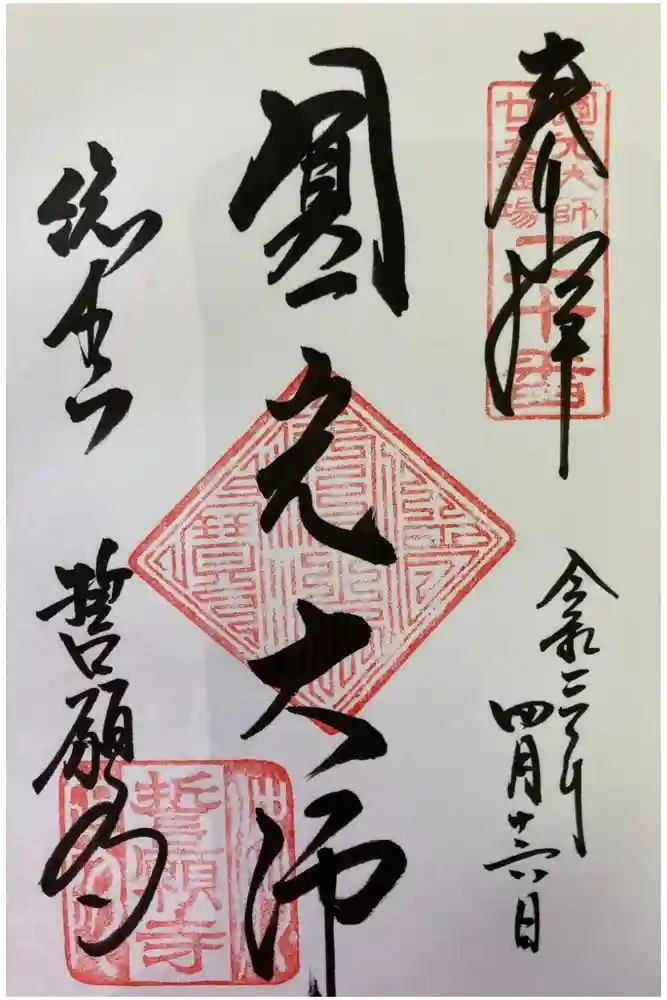 奉拝
圓光大師
廿五霊場
二十番
令和三年
四月十六日
圓光大師
総本山
誓願寺
誓願寺